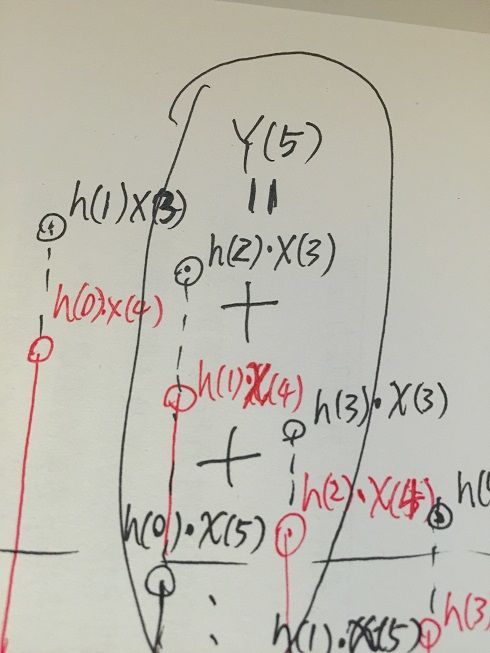 Y(5)
=
h(1)X(3)
h(2)·X(3)
+
h(0)·X(4)
h(1)·X(4)
h(3)·X(3)
+
h(2)·X(4)
h(0)·X(5)
h(3)
h(1)·X(5)